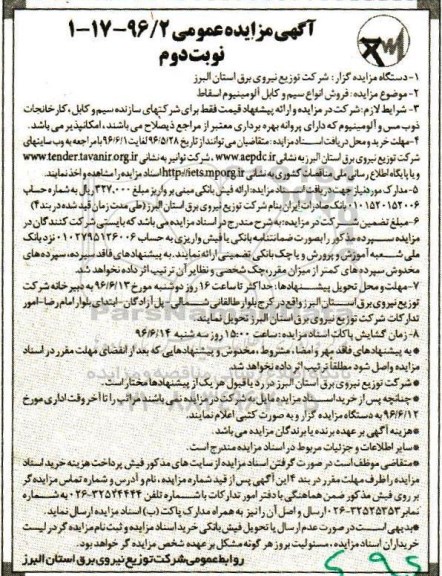 آگهی مزایده عمومی ۹۶/۲-۱۷-۱
نوبت دوم
۱- دستگاه مزایده گزار: شرکت توزیع نیروی برق استان البرز
۲- موضوع مزایده: فروش انواع سیم و کابل آلومینیوم اسقاط
۳- شرایط لازم: شرکت در مزایده و ارائه پیشنهاد قیمت فقط برای شرکتهای سازنده سیم و کابل، کارخانجات
ذوب مس و آلومینیوم که دارای پروانه بهره برداری معتبر از مراجع ذیصلاح می باشند، امکانپذیر می باشد.
۴- مهلت خرید و محل دریافت اسناد مزایده: متقاضیان می توانند از تاریخ ۹۶/۵/۲۸ لغایت ۹۶/۶/۱ با مراجعه به وب سایتهای
شرکت توزیع نیروی برق استان البرز به نشانی www.aepdc.ir، شرکت توانیر به نشانی www.tender.tavanir.org.ir
و یا پایگاه اطلاع رسانی ملی مناقصات کشوری به نشانی http://iets.mporg.ir اسناد مزایده را مشاهده و اخذ نمایند.
۵- مدارک مورد نیاز جهت دریافت اسناد مزایده: ارائه فیش بانکی مبنی بر واریز مبلغ ۳۲۷،۰۰۰ ریال به شماره حساب
۰۱۰۱۵۲۰۱۵۲۰۰۶ بانک صادرات ایران بنام شرکت توزیع نیروی برق استان البرز (طی مدت زمان قید شده در بند ۴)
۶- مبلغ تضمین شرکت در مزایده: به شرح مندرج در اسناد مزایده می باشد که بایستی شرکت کنندگان در
مزایده سپرده مذکور را بصورت ضمانتنامه بانکی یا فیش واریزی به حساب ۰۱۰۲۷۹۵۱۲۶۰۰۶ نزد بانک
ملی شعبه آموزش و پرورش و یا چک بانکی تضمینی ارائه نمایند. به پیشنهادهای فاقد سپرده، سپرده های
مخدوش سپرده های کمتر از میزان مقرر، چک شخصی و نظایر آن ترتیب اثر داده نخواهد شد.
۷- مهلت و محل تحویل پیشنهادها: حداکثر تا ساعت ۱۶ روز دوشنبه مورخ ۹۶/۶/۱۳ به دبیرخانه شرکت
توزیع نیروی برق استان البرز واقع در کرج بلوار طالقانی شمالی- پل آزادگان- ابتدای بلوار امام رضا- امور
تدارکات شرکت توزیع نیروی برق استان البرز تحویل نمایند.
۸- زمان گشایش پاکات اسناد مزایده: ساعت ۱۵:۰۰ روز سه شنبه ۹۶/۶/۱۴
* به پیشنهادهای فاقد مهر و امضا، مشروط، مخدوش و پیشنهادهایی که بعد از انقضای مهلت مقرر در اسناد
مزایده واصل شود مطلقاً ترتیب اثر داده نخواهد شد.
* شرکت توزیع نیروی برق استان البرز در رد یا قبول هر یک از پیشنهادها مختار است.
* چنانچه پس از خرید اسناد مزایده مایل به شرکت در مزایده نمی باشند مراتب را تا آخر وقت اداری مورخ
۹۶/۶/۱۲ به دستگاه مزایده گزار و به صورت کتبی اعلام نمایند.
* هزینه آگهی بر عهده برنده یا برندگان مزایده می باشد.
* سایر اطلاعات و جزئیات مربوط در اسناد مزایده مندرج است.
* متقاضی موظف است در صورت گرفتن اسناد مزایده از سایت های مذکور فیش پرداخت هزینه خرید اسناد
مزایده را ظرف مهلت مقرر در بند ۴ این آگهی پس از قید شماره مزایده، نام و آدرس و شماره تماس مزایده گر
بر روی فیش مذکور ضمن هماهنگی با دفتر امور تدارکات با شماره تلفن ۳۲۵۲۴۴۴۴-۰۲۶ به شماره
نمابر ۳۲۵۲۵۳۵۳-۰۲۶ ارسال و اصل آن را نیز به همراه مدارک پاکت (ب) اسناد مزایده ارسال نماید.
* بدیهی است در صورت عدم ارسال یا تحویل فیش بانکی خرید اسناد مزایده و ثبت نام مزایده گر در لیست
خریداران اسناد مزایده، مسئولیت بروز هر گونه مشکل بر عهده شخص مزایده گر خواهد بود.
روابط عمومی شرکت توزیع نیروی برق استان البرز
ParsNamadData